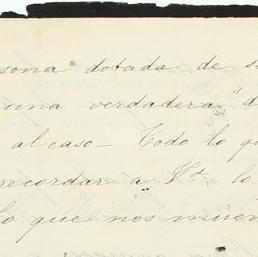 sona dotada de s
una verdadera "d
al caso — Todo lo q
recordar a Vd. lo
lo que nos mue